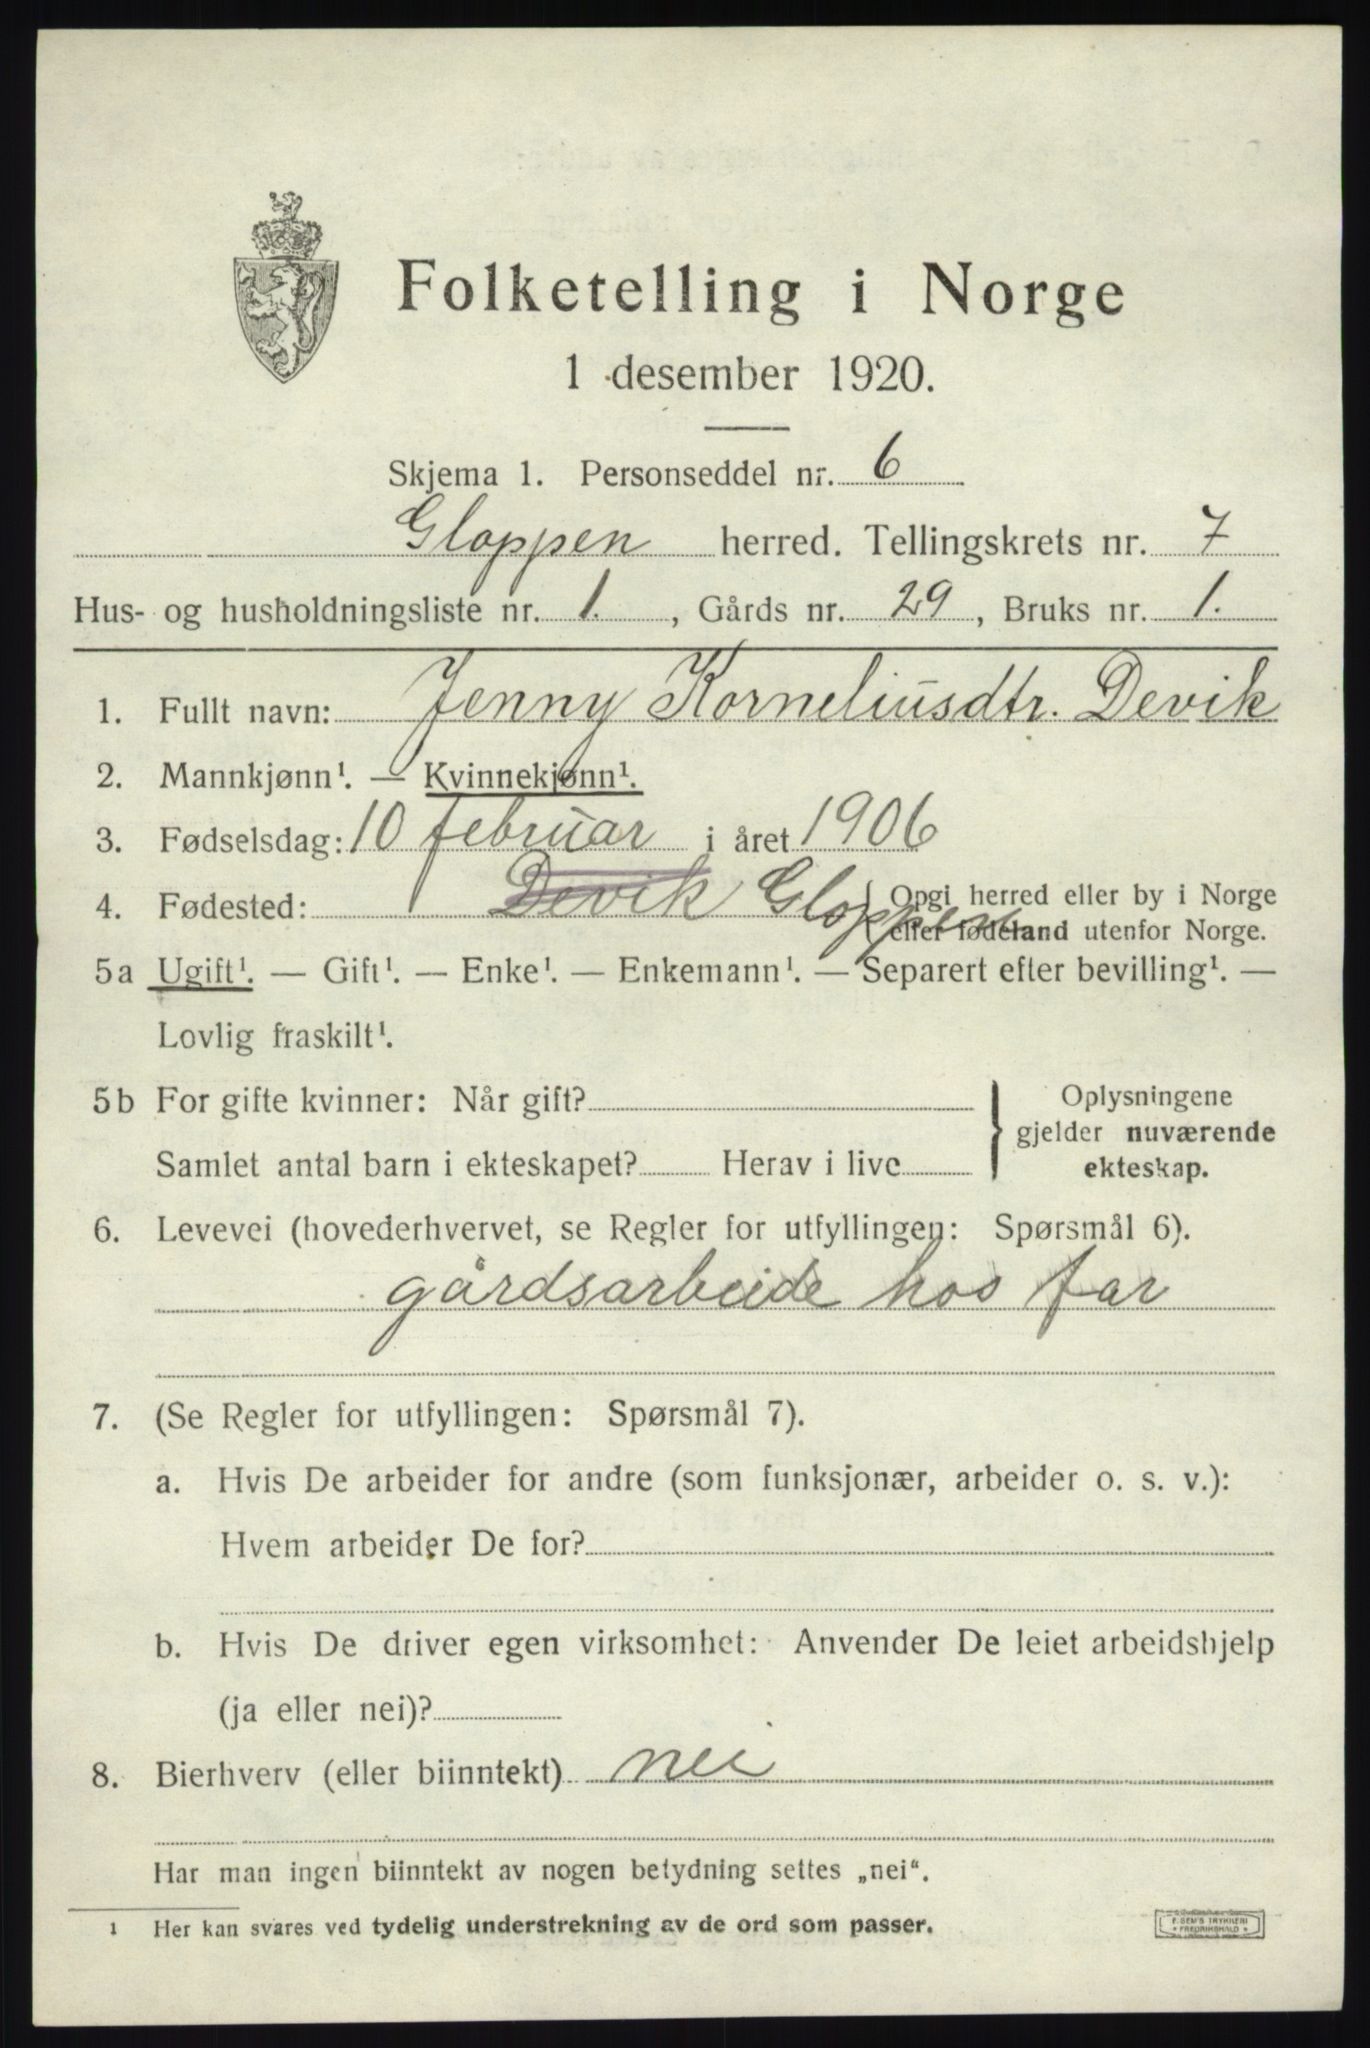 Folketelling i Norge
1 desember 1920.
Skjema 1. Personseddel nr. 6
Gloppen herred. Tellingskrets nr. 7
Hus- og husholdningsliste nr. 1. , Gårds nr. 29 , Bruks nr. 1.
1. Fullt navn: Jenny Korneliusdtr. Devik
2. Mannkjønn¹. — Kvinnekjønn¹.
3. Fødselsdag: 10 februar i året 1906
4. Fødested: Devik Gloppen { Opgi herred eller by i Norge
eller fødeland utenfor Norge.
5a Ugift¹. — Gift¹. — Enke¹. — Enkemann¹. — Separert efter bevilling¹. —
Lovlig fraskilt¹.
5b For gifte kvinner: Når gift? } Oplysningene
gjelder nuværende
Samlet antal barn i ekteskapet? Herav i live
ekteskap.
6. Levevei (hovederhvervet, se Regler for utfyllingen: Spørsmål 6).
gårdsarbeide hos far
7. (Se Regler for utfyllingen: Spørsmål 7).
a. Hvis De arbeider for andre (som funksjonær, arbeider o. s. v.):
Hvem arbeider De for?
b. Hvis De driver egen virksomhet: Anvender De leiet arbeidshjelp
(ja eller nei)?
8. Bierhverv (eller biinntekt) nei
Har man ingen biinntekt av nogen betydning settes „nei“.
1 Her kan svares ved tydelig understrekning av de ord som passer.
F. SEM'S TRYKKERI
• FREDRIKSHALD •